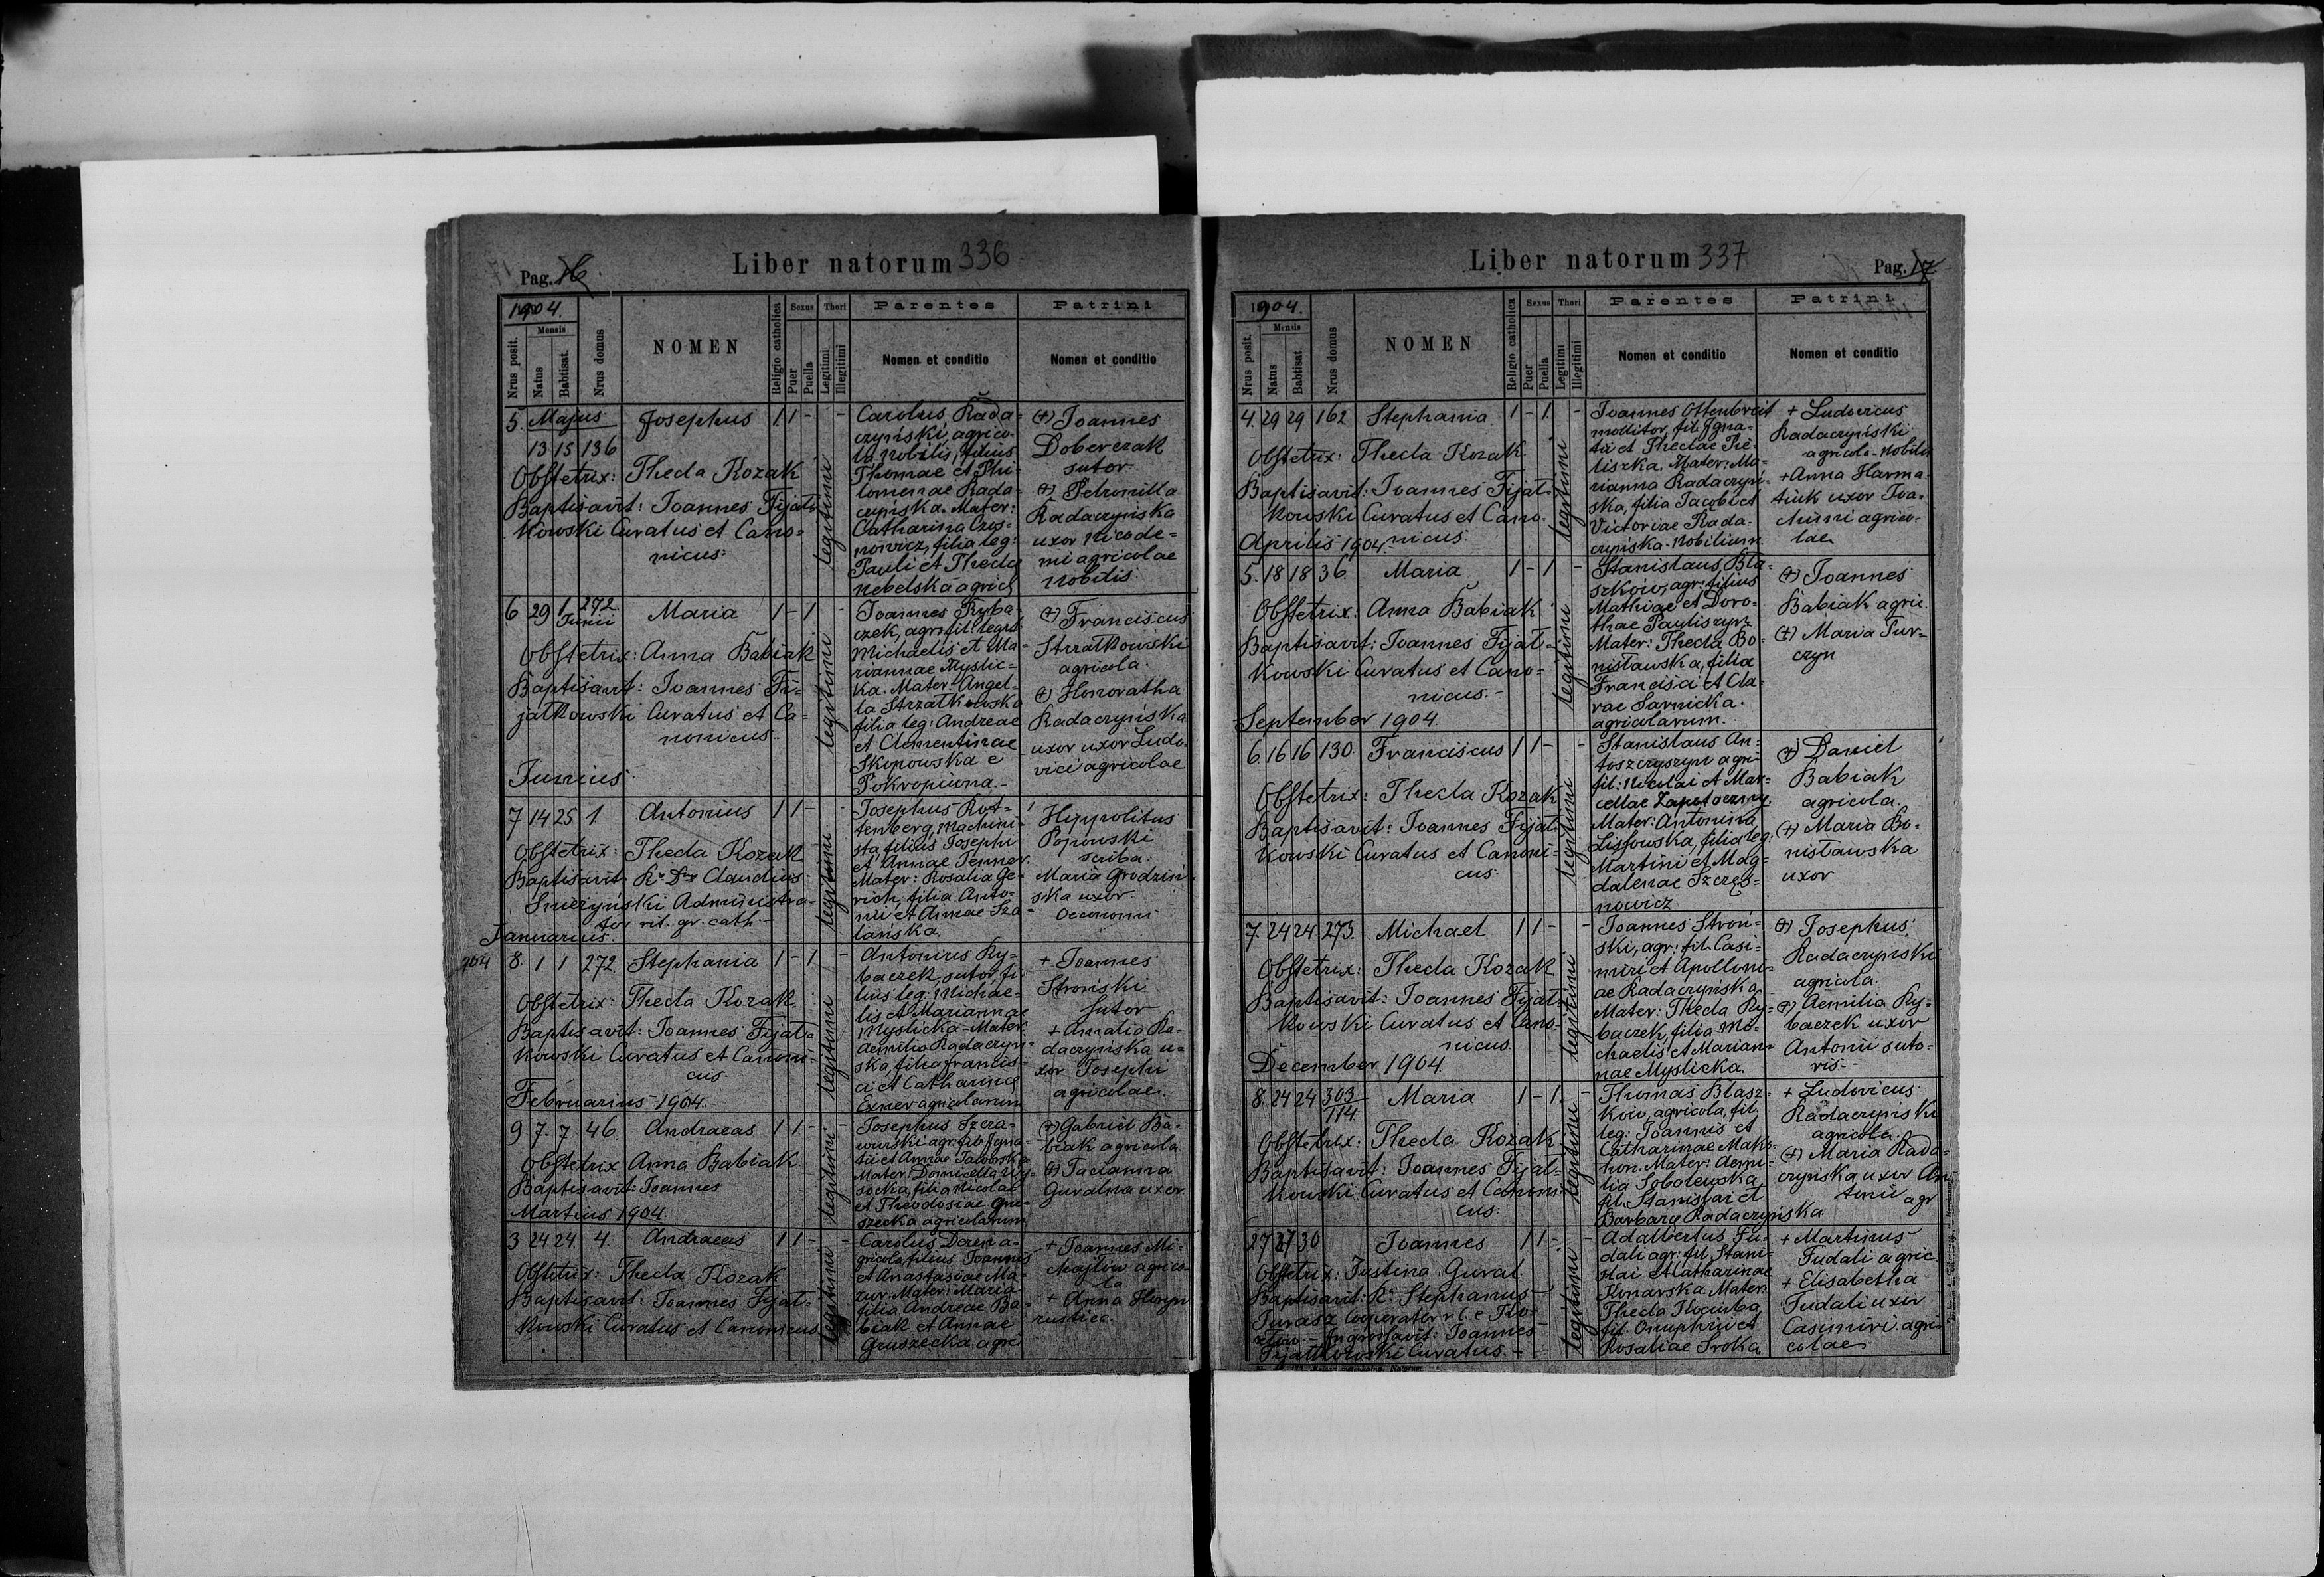 Pag. 16
Liber natorum 336
1904.
Nrus posit.
Mensis
Natus
Babtisat.
Nrus domus
NOMEN
Religio catholica
Sexus
Puer
Puella
Thori
Legitimi
Illegitimi
Parentes
Nomen et conditio
Patrini
Nomen et conditio
5. Majus
13 15 136
Josephus 1 1 - -
Obstetrix: Thecla Kozak
Baptisavit: Joannes Fijał-
kowski Curatus et Cano=
nicus:
legitimi
Carolus Rada=
czyński, agrico-
la nobilis, filius
Thomae et Phi-
lomenae Rada-
czyńska. Mater:
Catharina Czos-
nowicz, filia leg:
Pauli et Thecla
nebelska agric
(+) Joannes
Doberczak
sutor
(+) Petronilla
Radaczyńska
uxor Nicode=
mi agricolae
nobilis.
6 29 1 Junii 272
Maria 1 - 1 -
Obstetrix: Anna Babiak
Baptisavit: Joannes Fi-
jałkowski Curatus et Ca-
nonicus
legitimi
Joannes Ryba-
czek, agr: fil: legit
Michaelis et Ma-
riannae Myslic=
ka. Mater: Angel-
la Strzałkowska
filia leg: Andreae
et Clementinae
Skopowska e
Pokropiwna.-
(+) Franciscus
Strzałkowski
agricola.
(+) Honoratha
Radaczyńska
uxor uxor Ludo-
vici agricolae
Junius
7 14 25 1
Antonius 1 1 - -
Obstetrix: Thecla Kozak
Baptisavit Rs Ds Claudius
Smerzyński Administra-
tor rit. gr. cath.-
legitimi
Josephus Rot=
tenberg, machini-
sta filius Josephi
et Annae Jenner
Mater: Rosalia Ge-
rich, filia Anto-
nii et Annae Sza-
lańska
Hippolitus
Popowski
scriba.
Maria Grodzin
ska uxor
Oeconomi
Januarius.
904 8. 1 1 272
Stephania 1 - 1 -
Obstetrix: Thecla Kozak.
Baptisavit: Joannes Fijał=
kowski Curatus et Canoni-
cus.
legitimi
Antonius Ry-
baczek, sutor fi-
lius leg: Michae-
lis et Mariannae
Myslicka-Mater
Aemilia Radaczyń-
ska, filia Francis-
ci et Catharinae
Exner agricolarum
+ Joannes
Stroński
sutor
+ Amalia Ra-
daczyńska u=
xor Josephi
agricolae.
Februarius 1904.
9 7. 7 46
Andraeas 1 1 - -
Obstetrix Anna Babiak
Baptisavit: Joannes
legitimi
Josephus Szcza-
wurski agr: fil: Igna-
tii et Annae Jaworska
Mater: Domicella Wy-
socka, filia Nicolai
et Theodosiae Gru-
szecka agricolarum
(+) Gabriel Ba-
biak agricola
(+) Tacianna
Guralna uxor
Martius 1904.
3 24 24. 4.
Andraeas 1 1 - -
Obstetrix: Thecla Kozak
Baptisavit: Joannes Fijał-
kowski Curatus et Canonicus
legitimi
Carolus Deren a-
gricola filius Joannis
et Anastasiae Ma-
zur. Mater: Maria
filia Andreae Ba-
biak et Annae
Gruszecka agri
+ Joannes Mi-
chajłow agrico
la
+ Anna Horyn
rustica.
Liber natorum 337
Pag. 17
1904.
Nrus posit.
Mensis
Natus
Babtisat.
Nrus domus
NOMEN
Religio catholica
Sexus
Puer
Puella
Thori
Legitimi
Illegitimi
Parentes
Nomen et conditio
Patrini
Nomen et conditio
4. 29 29 162
Stephania 1 - 1. -
Obstetrix: Thecla Kozak.
Baptisavit: Joannes Fijał-
kowski Curatus et Cano-
nicus.
legitimi
Joannes Ottenbreit
mollitor, fil. Igna-
tii et Theclae Pie-
liszka. Mater: Ma-
rianna Radaczyń-
ska, filia Jacobi et
Victoriae Rada-
czyńska-Nobilium
+ Ludovicus
Radaczyński
agricola-Nobilis
+ Anna Harma-
tiuk uxor Joa-
chimi agrico-
lae
Aprilis 1904.
5. 18 18 36.
Maria 1 - 1 -
Obstetrix: Anna Babiak
Baptisavit: Joannes Fijał=
kowski Curatus et Cano-
nicus.-
legitimi
Stanislaus Bła-
szków, agr: filius
Mathiae et Doro-
thae Pauliszyn
Mater: Thecla Bo-
nisławska, filia
Francisci et Cla-
rae Sarnicka.
agricolarum.
(+) Joannes
Babiak agric.
(+) Maria Pur-
czyn
September 1904.
6. 16 16 130
Franciscus 1 1 - -
Obstetrix: Thecla Kozak
Baptisavit: Joannes Fijał-
kowski Curatus et Canoni=
cus:
legitimi
Stanislaus An-
toszczyszyn agri-
fil: Nicolai et Mar-
cellae Zapotoczny.
Mater: Antonina
Lissowska, filia leg:
Martini et Mag-
dalenae Szczęs=
nowicz
(+) Daniel
Babiak
agricola.
(+) Maria Bo-
nisławska
uxor
7. 24 24 273.
Michael 1 1 - -
Obstetrix: Thecla Kozak
Baptisavit: Joannes Fijał=
kowski Curatus et Cano-
nicus.
legitimi
Joannes Stroń-
ski, agr: fil. Casi=
miri et Apolloni-
ae Radaczyńska
Mater: Thecla Ry-
baczek, filia Mi-
chaelis et Marian-
nae Myslicka.
(+) Josephus
Radaczyński
agricola.
(+) Aemilia Ry=
baczek uxor
Antonii suto-
ris.-
December 1904.
8. 24 24 303/114
Maria 1 - 1. -
Obstetrix: Thecla Kozak
Baptisavit: Joannes Fijał=
kowski Curatus et Canoni-
cus:
legitimi
Thomas Błasz-
ków, agricola, fil.
leg: Joannis et
Catharinae Maks-
hon. Mater: Aemi-
lia Sobolewska
fil. Stanislai et
Barbara Radaczyńska.
+ Ludovicus
Radaczyński
agricola.
(+) Maria Rada=
czyńska uxor An
tonii agr
27 27 30
Joannes 1 1 - -
Obstetrix: Justina Gural
Baptisavit: Rs Stephanus
Jurasz Cooperator r. l. e Ko-
Ingrossavit: Joannes
Fijałkowski Curatus.-
legitimi
Adalbertus Fu-
dali agr: fil. Stani-
slai et Catharinae
Konarska. Mater
Thecla Kociuba
fil. Onuphrii et
Rosaliae Sroka
+ Martinus
Fudali agric.
+ Elisabetha
Fudali uxor
Casimiri agri
colae